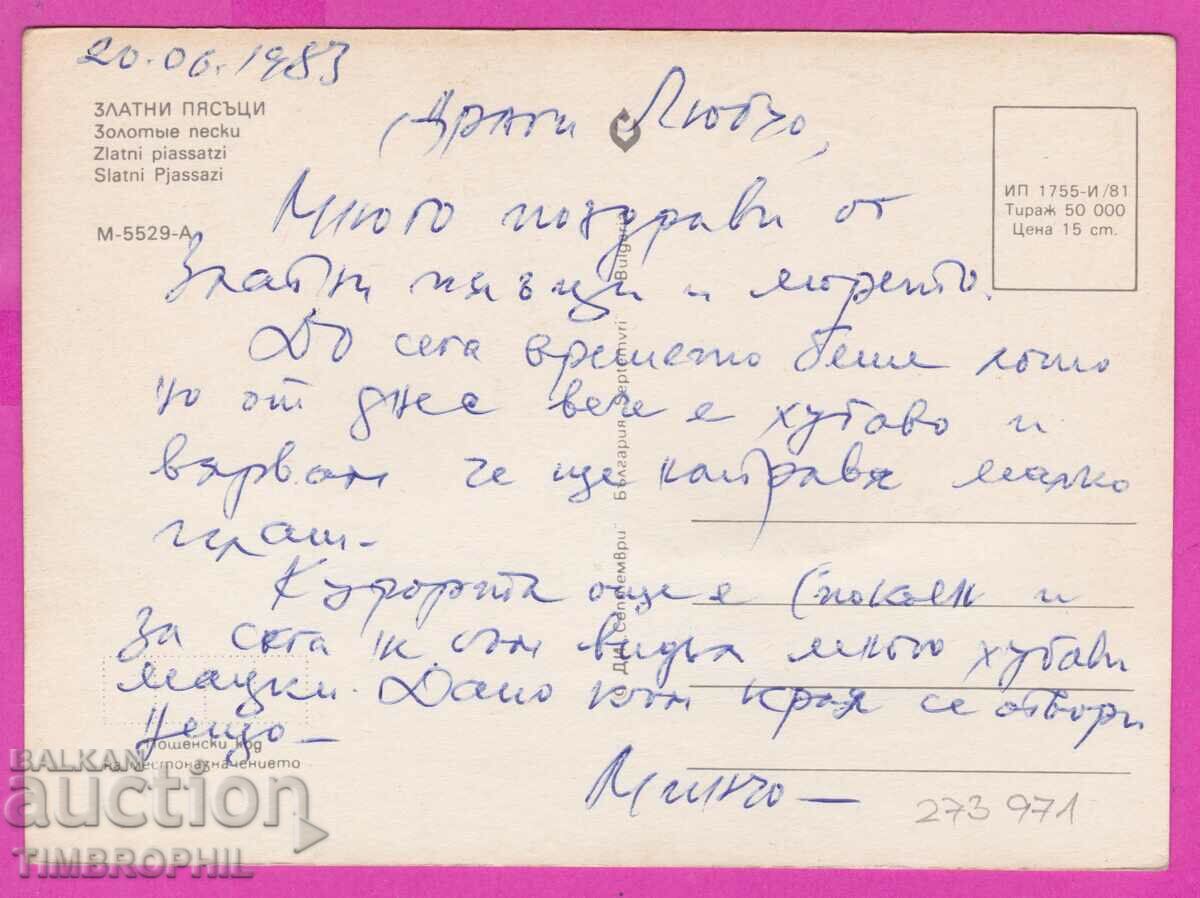 20.06.1983
ЗЛАТНИ ПЯСЪЦИ
Золотые пески
Zlatni piassatzi
Slatni Pjassazi
М-5529-А
ИП 1755-И/81
Тираж 50 000
Цена 15 ст.
Драги Любчо,
Много поздрави от
Златни пясъци и морето.
До сега времето беше лошо
но от днес вече е хубаво и
вярвам че ще направя малко
плаж.
Курорта още е спокоен и
За сега не съм видял много хубави
мацки. Дано към края се отвори
нещо —
Минчо —
© ДИ „Септември" България Septemvri Bulgaria
Пощенски код
на местоназначението
273 971
BALKAN
auction
TIMBROPHIL